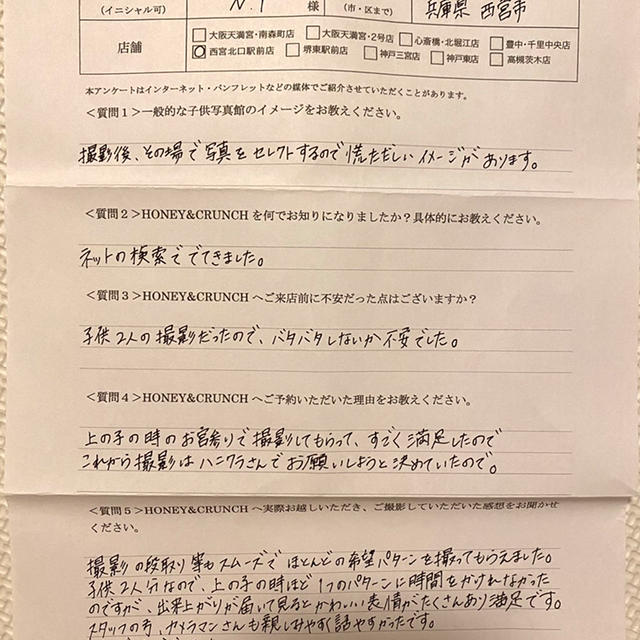 (イニシャル可) N.Y 様 (市・区まで) 兵庫県 西宮市
店舗 大阪天満宮・南森町店 大阪天満宮・2号店 心斎橋・北堀江店 豊中・千里中央店
西宮北口駅前店 堺東駅前店 神戸三宮店 神戸東店 高槻茨木店
本アンケートはインターネット・パンフレットなどの媒体でご紹介させていただくことがあります。
＜質問１＞一般的な子供写真館のイメージをお教えください。
撮影後、その場で写真をセレクトするので慌ただしいイメージがあります。
＜質問２＞HONEY&CRUNCH を何でお知りになりましたか？具体的にお教えください。
ネットの検索ででてきました。
＜質問３＞HONEY&CRUNCH へご来店前に不安だった点はございますか？
子供2人の撮影だったので、バタバタしないか不安でした。
＜質問４＞HONEY&CRUNCH へご予約いただいた理由をお教えください。
上の子の時のお宮参りで撮影してもらって、すごく満足したので
これから撮影はハニクラさんでお願いしようと決めていたので。
＜質問５＞HONEY&CRUNCH へ実際お越しいただき、ご撮影していただいた感想をお聞かせ
ください。
撮影の段取り等もスムーズでほとんどの希望パターンを撮ってもらえました。
子供2人分なので、上の子の時ほど1つのパターンに時間をかけれなかった
のですが、出来上がりが届いて見るとかわいい表情がたくさんあり満足です。
スタッフの方、カメラマンさんも親しみやすく話やすかったです。